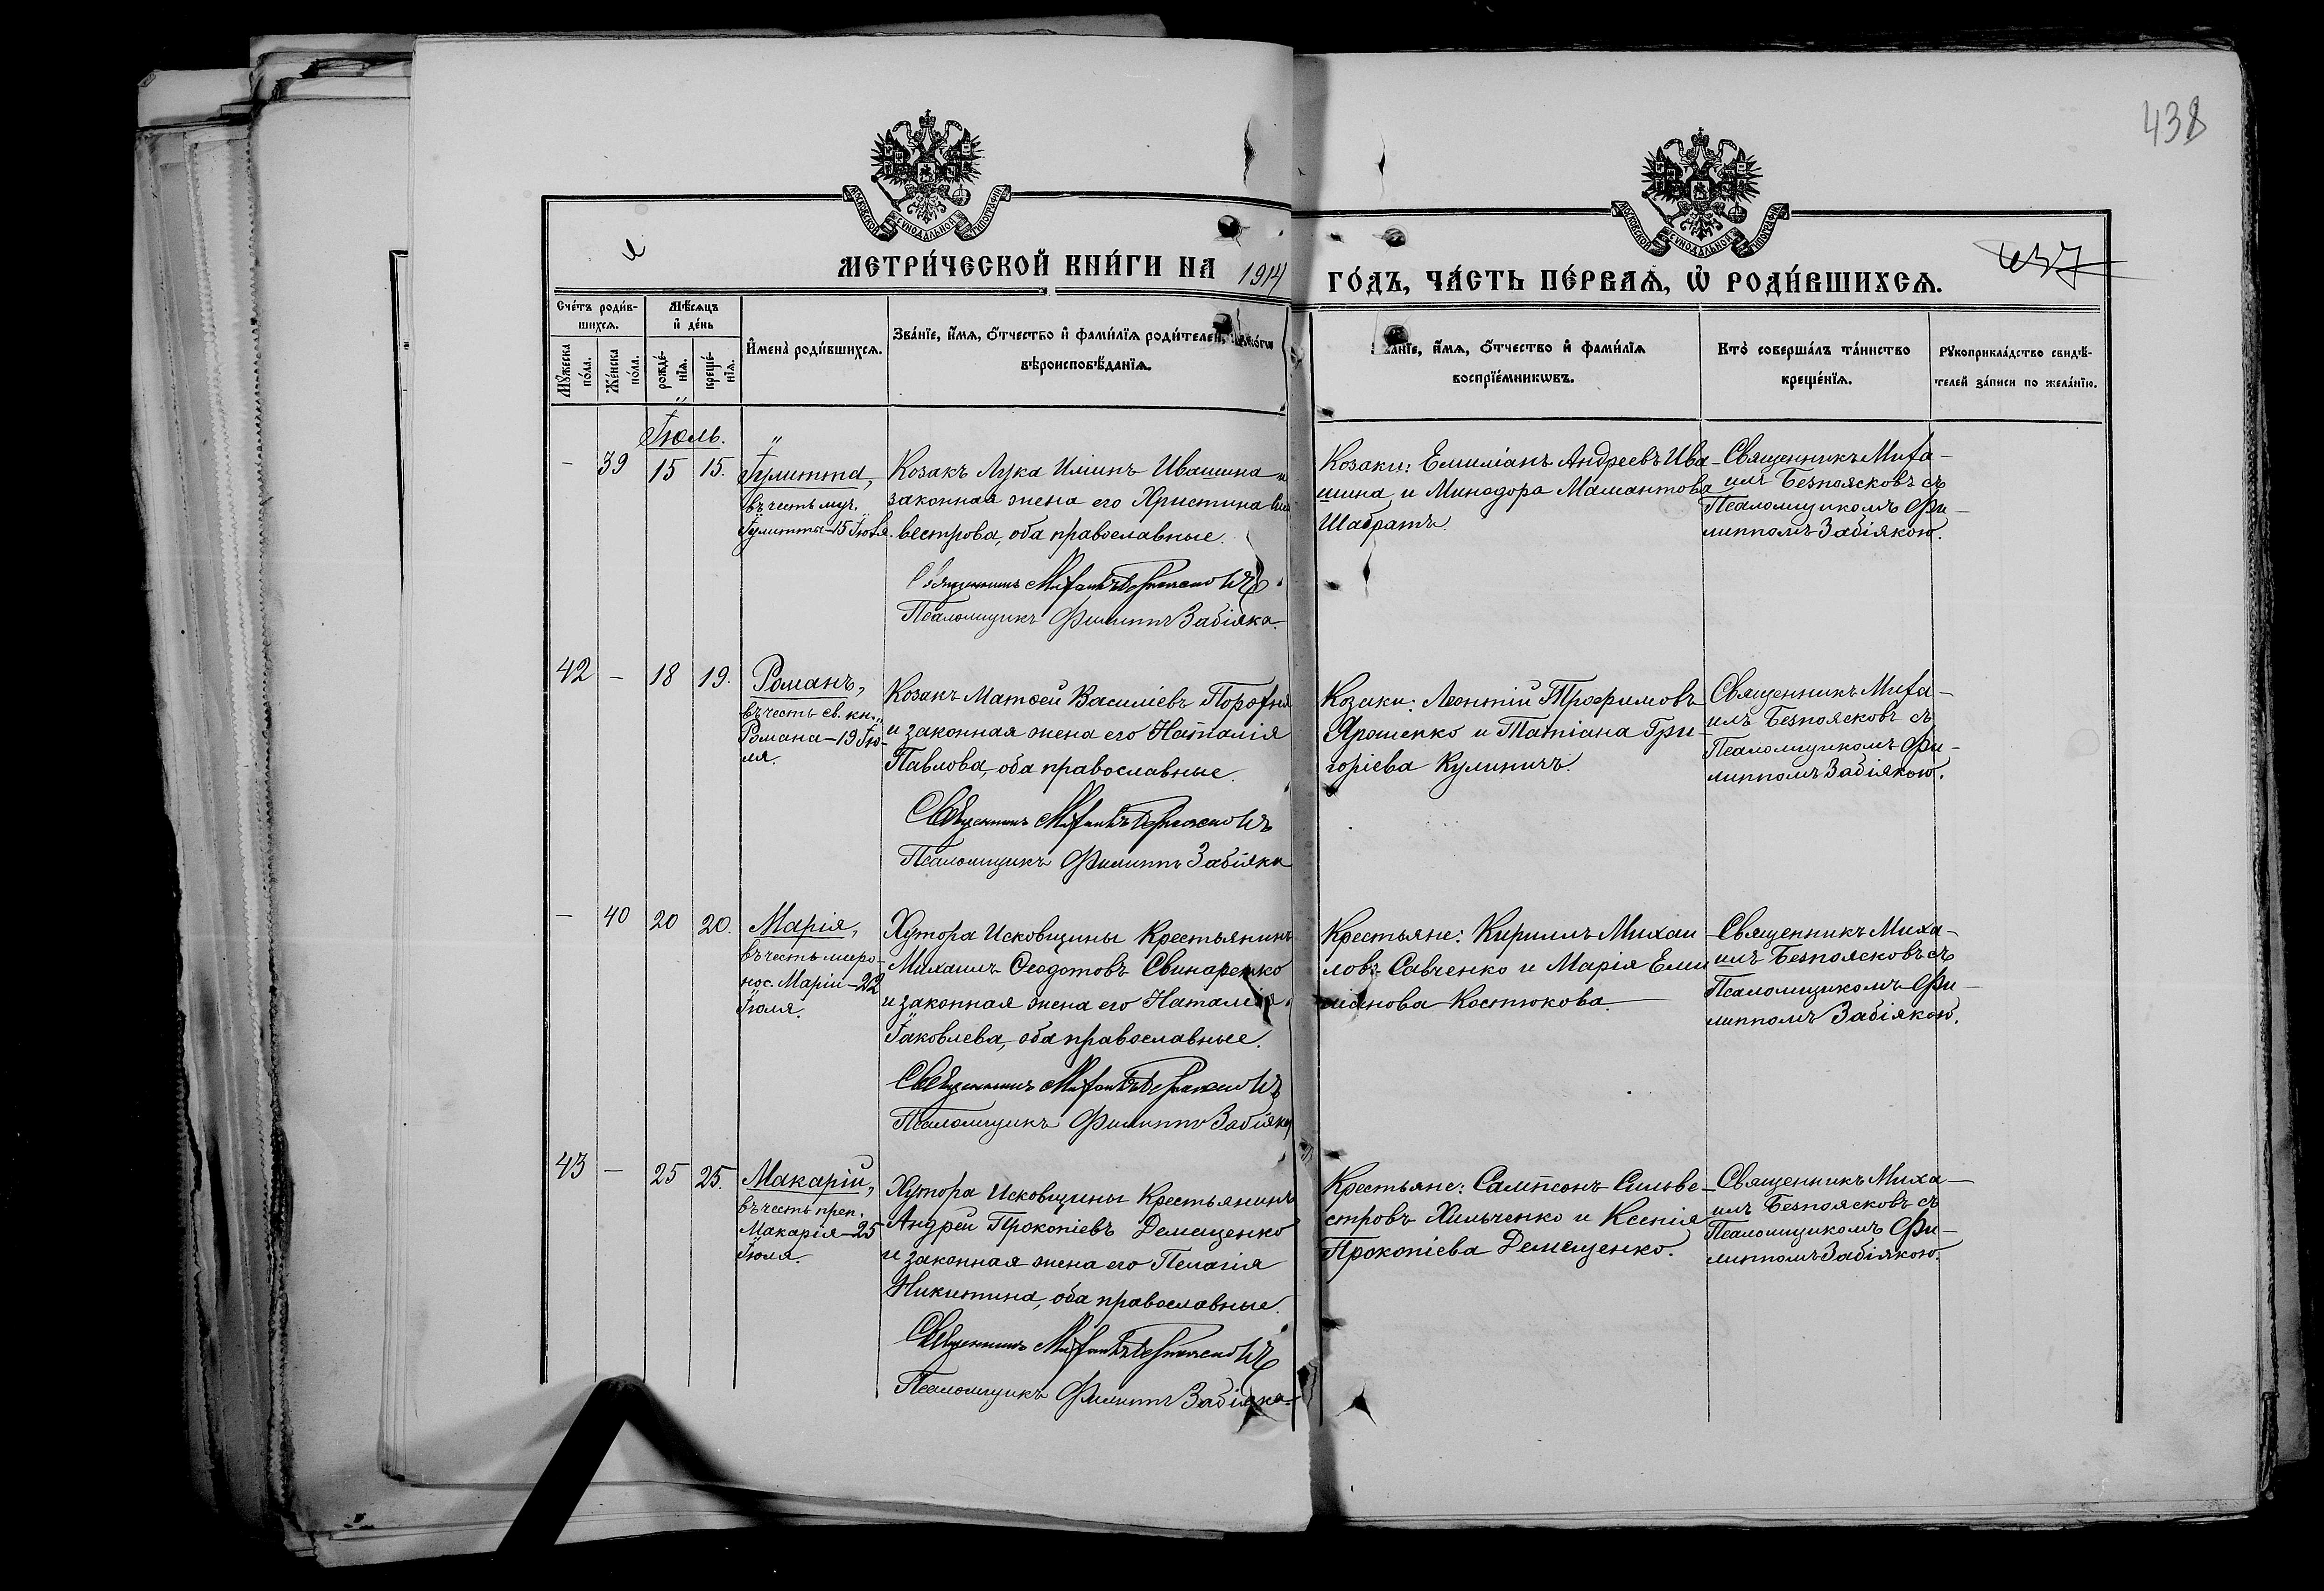 438
МОСКОВСКОЙ СУНОДАЛЬНОЙ ТИПОГРАФІИ
МОСКОВСКОЙ СУНОДАЛЬНОЙ ТИПОГРАФІИ
437
МЕТРИ́ЧЕСКОЙ КНИ́ГИ НА 1914 ГО́ДЪ, ЧА́СТЬ ПЕ́РВАѦ, Ѡ҆ РОДИ́ВШИХСѦ.
Сче́тъ роди́в-
шихсѧ.
Мꙋ́жеска
по́ла.
Же́нска
по́ла.
Мѣ́сѧцъ
и҆ де́нь
рожде́-
нїѧ.
креще́-
нїѧ.
И҆мена̀ роди́вшихсѧ.
Зва́нїе, и҆́мѧ, ѻ҆́тчество и҆ фами́лїѧ роди́телей,
вѣроисповѣ́данїѧ.
Зва́нїе, и҆́мѧ, ѻ҆́тчество и҆ фами́лїѧ
воспрїе́мникѡвъ.
Кто̀ соверша́лъ та́инство
креще́нїѧ.
Рꙋкоприкла́дство свидѣ́-
телей за́писи по жела́нїю.
Іюль.
– 39 15 15.
Іулитта,
въ честь муч.
Іулитты–15 Іюля.
Козакъ Лука Иліинъ Ивашина и
законная жена его Христина Сил
вестрова, оба православные.
Священникъ Михаилъ Безпоясковъ
Псаломщикъ Филиппъ Забіяка.
Козаки: Емиліанъ Андреевъ Ива-
шина и Минодора Мамантова
Шабратъ.
Священникъ Миха-
илъ Безпоясковъ съ
Псаломщикомъ Фи-
липпомъ Забіякою.
42 – 18 19.
Романъ,
въ честь св. кн.
Романа–19 Ію-
ля.
Козакъ Матѳей Василіевъ Порохня
и законная жена его Наталія
Павлова, оба православные.
Священникъ Михаилъ Безпоясковъ
Псаломщикъ Филиппъ Забіяка
Козаки: Леонтій Трофимовъ
Ярошенко и Татіана Гри-
горіева Кулиничъ.
Священникъ Миха-
илъ Безпоясковъ съ
Псаломщикомъ Фи-
липпомъ Забіякою.
– 40 20 20.
Марія,
въ честь миро-
нос. Маріи–22
Іюля.
Хутора Исковщины Крестьянинъ
Михаилъ Ѳеодотовъ Свинаренко
и законная жена его Наталія
Іаковлева, оба православные.
Священникъ Михаилъ Безпоясковъ
Псаломщикъ Филиппъ Забіяка
Крестьяне: Кириллъ Михаи
ловъ Савченко и Марія Еми
ліанова Костюкова.
Священникъ Миха-
илъ Безпоясковъ съ
Псаломщикомъ Фи-
липпомъ Забіякою.
43 – 25 25.
Макарій,
въ честь преп.
Макарія–25
Іюля.
Хутора Исковщины Крестьянинъ
Андрей Прокопіевъ Демещенко
и законная жена его Пелагія
Никитина, оба православные.
Священникъ Михаилъ Безпоясковъ
Псаломщикъ Филиппъ Забіяка
Крестьяне: Сампсонъ Сильве-
стровъ Хильченко и Ксенія
Прокопіева Демещенко.
Священникъ Миха-
илъ Безпоясковъ съ
Псаломщикомъ Фи-
липпомъ Забіякою.